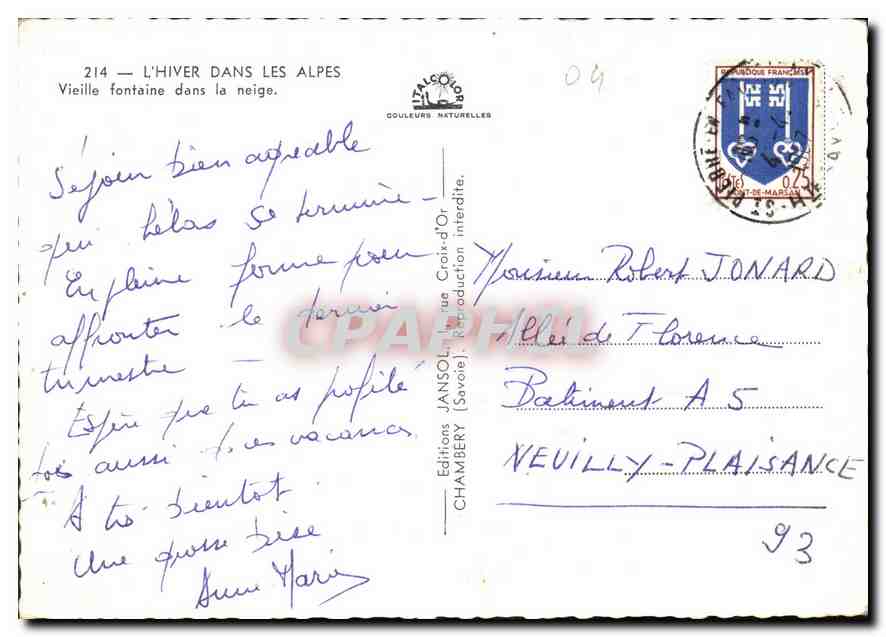 214 — L'HIVER DANS LES ALPES
Vieille fontaine dans la neige.
ITALCOLOR
COULEURS NATURELLES
04
REPUBLIQUE FRANÇAISE
0.25
MONT-DE-MARSAN
Séjour bien agréable
qui hélas se termine -
En pleine forme pour
affronter le dernier
trimestre -
Espère que tu as profité
toi aussi de ces vacances
A très bientôt.
Une grosse bise
Anne Marie
Editions JANSOL, rue Croix-d'Or
CHAMBERY (Savoie). Reproduction interdite.
CPAPHIL
Monsieur Robert JONARD
Allée de Florence
Batiment A 5
NEUILLY-PLAISANCE
93